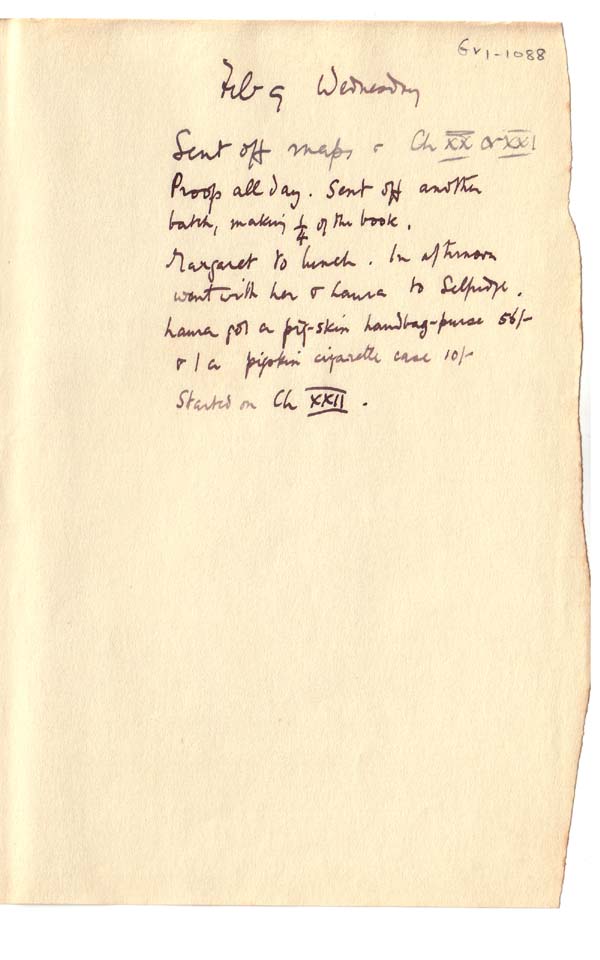 Gv1-1088
Feb 9 Wednesday
Sent off maps & Ch XX & XXI
Proofs all day. Sent off another
batch, making 1/4 of the book.
Margaret to lunch. In afternoon
went with her & Laura to Selfridge.
Laura got a pig-skin handbag-purse 56/-
& I a pigskin cigarette case 10/-
Started on Ch XXII.